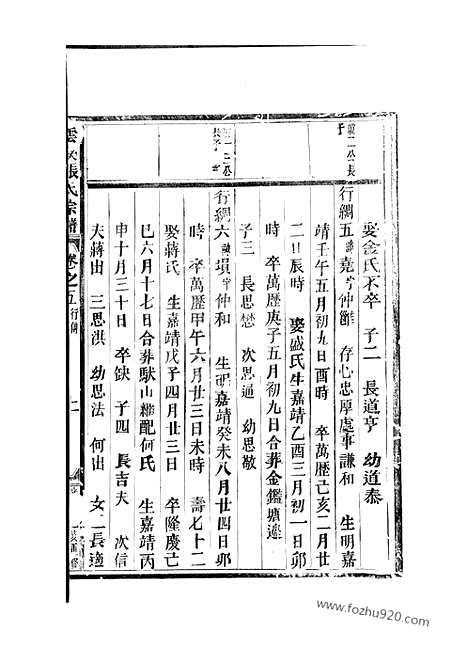 娶金氏不卒 子二 長道亨 幼道泰
行綢五 諱堯字仲雝 存心忠厚處事謙和 生明嘉
靖壬午五月初九日酉時 卒萬歷己亥二月廿
二日辰時 娶盛氏生嘉靖乙酉三月初一日卯
時 卒萬歷庚子五月初九日合葬金鑑塘邊
子三 長思懋 次思通 幼思敬
行綢六 諱塤字仲和 生明嘉靖癸未八月廿四日卯
時 卒萬歷甲午六月廿三日未時 壽七十二
娶蔣氏 生嘉靖戊子四月廿三日 卒隆慶己
巳六月十七日合葬馱山 繼配何氏 生嘉靖丙
申十月三十日 卒缺 子四 長吉夫 次信
夫蔣出 三思洪 幼思法 何出 女二長適
張氏宗譜 卷之五 行傳 二
www.fozhu920.com